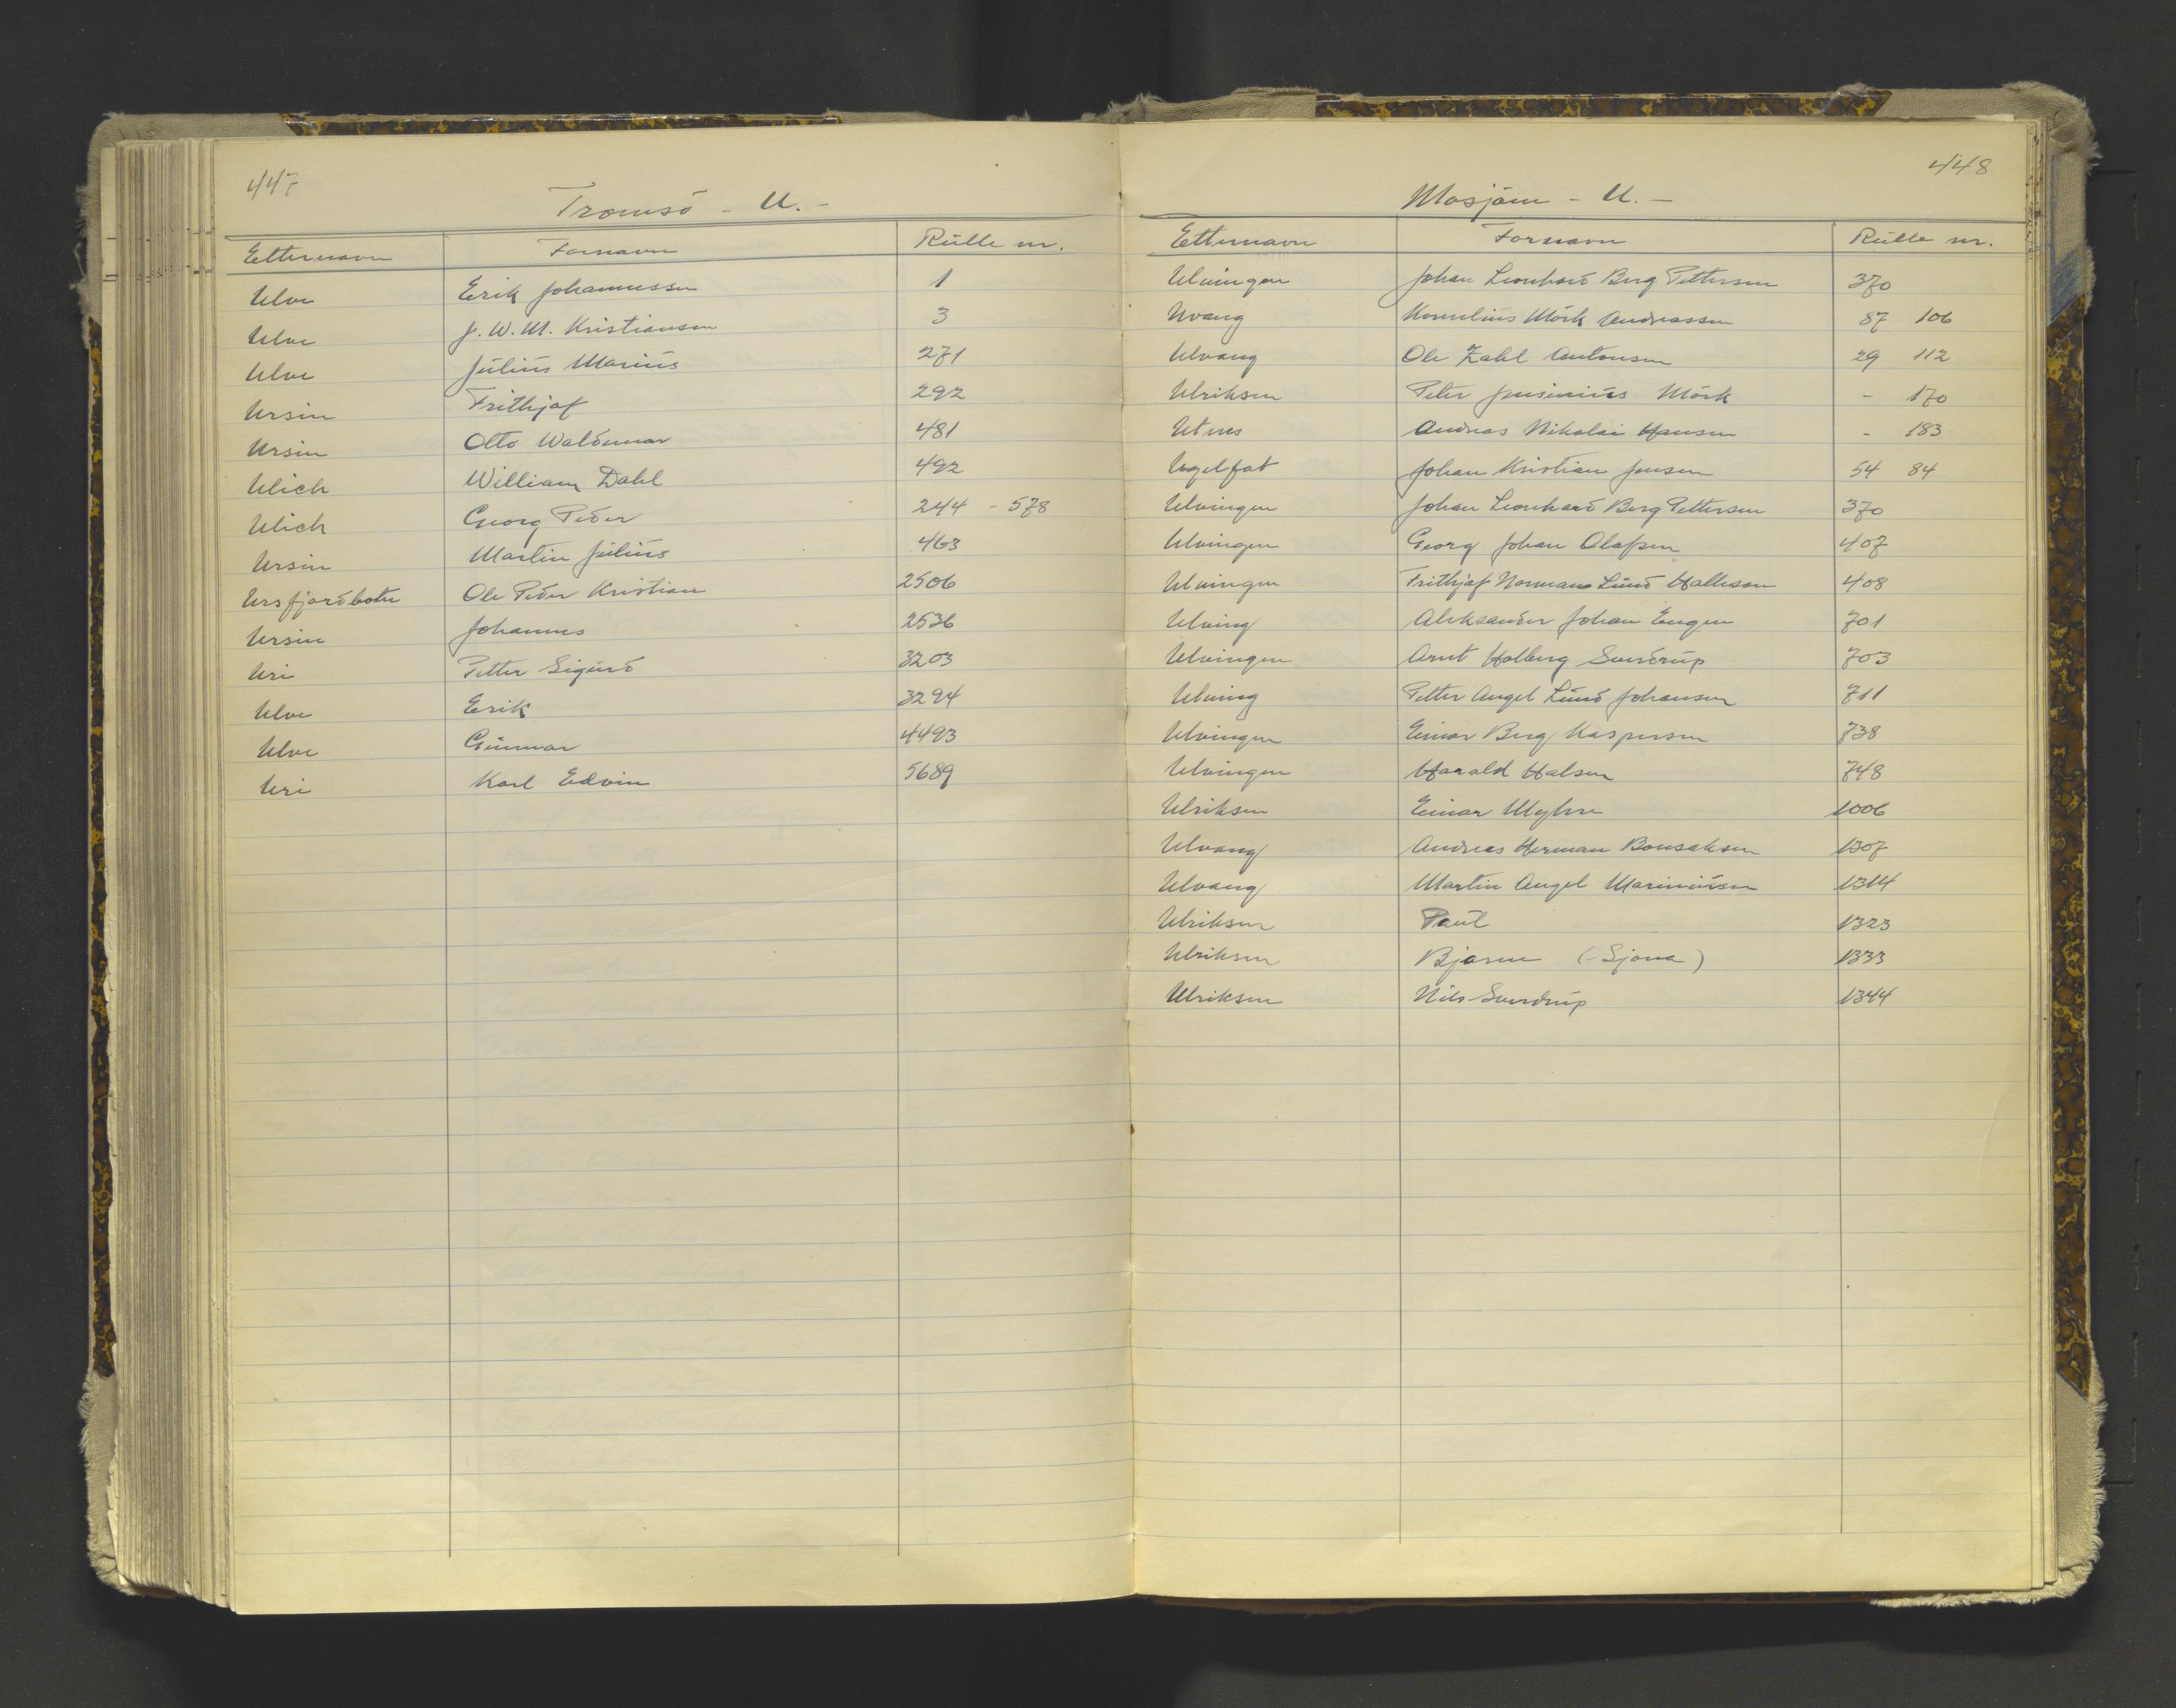 447
Tromsö - U. -
Etternavn Fornavn Rulle nr.
Ulve Erik Johannessen 1
Ulve J. W. M. Kristiansen 3
Ulve Julius Marius 271
Ursin Frithjof 292
Ursin Otto Waldemar 481
Ulich William Dahl 492
Ulich Georg Peder 244 - 578
Ursin Martin Julius 463
Ursfjordbotn Ole Peder Kristian 2506
Ursin Johannes 2536
Uri Petter Sigurd 3203
Ulve Erik 3294
Ulve Gunnvar 4493
Uri Karl Edvin 5689
448
Mosjöen - U. -
Etternavn Fornavn Rulle nr.
Ulvingen Johan Leonhard Berg Pettersen 370
Uvang Kornelius Mörk Andreassen 87 106
Ulvang Ole Zahl Antonsen 29 112
Ulriksen Peter Jensenius Mörk - 170
Utnes Andreas Nikolai Hansen - 183
Johan Kristian Jensen 54 84
Ulvingen Johan Leonhard Berg Pettersen 370
Ulvingen Georg Johan Olafsen 407
Ulvingen Frithjof Normann Lund Halleson 408
Ulving Aleksander Johan Eugen 701
Ulvingen Arnt Holberg Sverdrup 703
Ulving Petter Angel Lund Johansen 711
Ulvingen Einar Berg Kaspersen 738
Ulvingen Harald Halsen 748
Ulriksen Einar Myhre 1006
Ulvang Andreas Herman Bonsaksen 1307
Ulvang Martin Angel Mariniusen 1314
Ulriksen Paul 1323
Ulriksen Bjarne (Sjona) 1333
Ulriksen Nils Sverdrup 1344